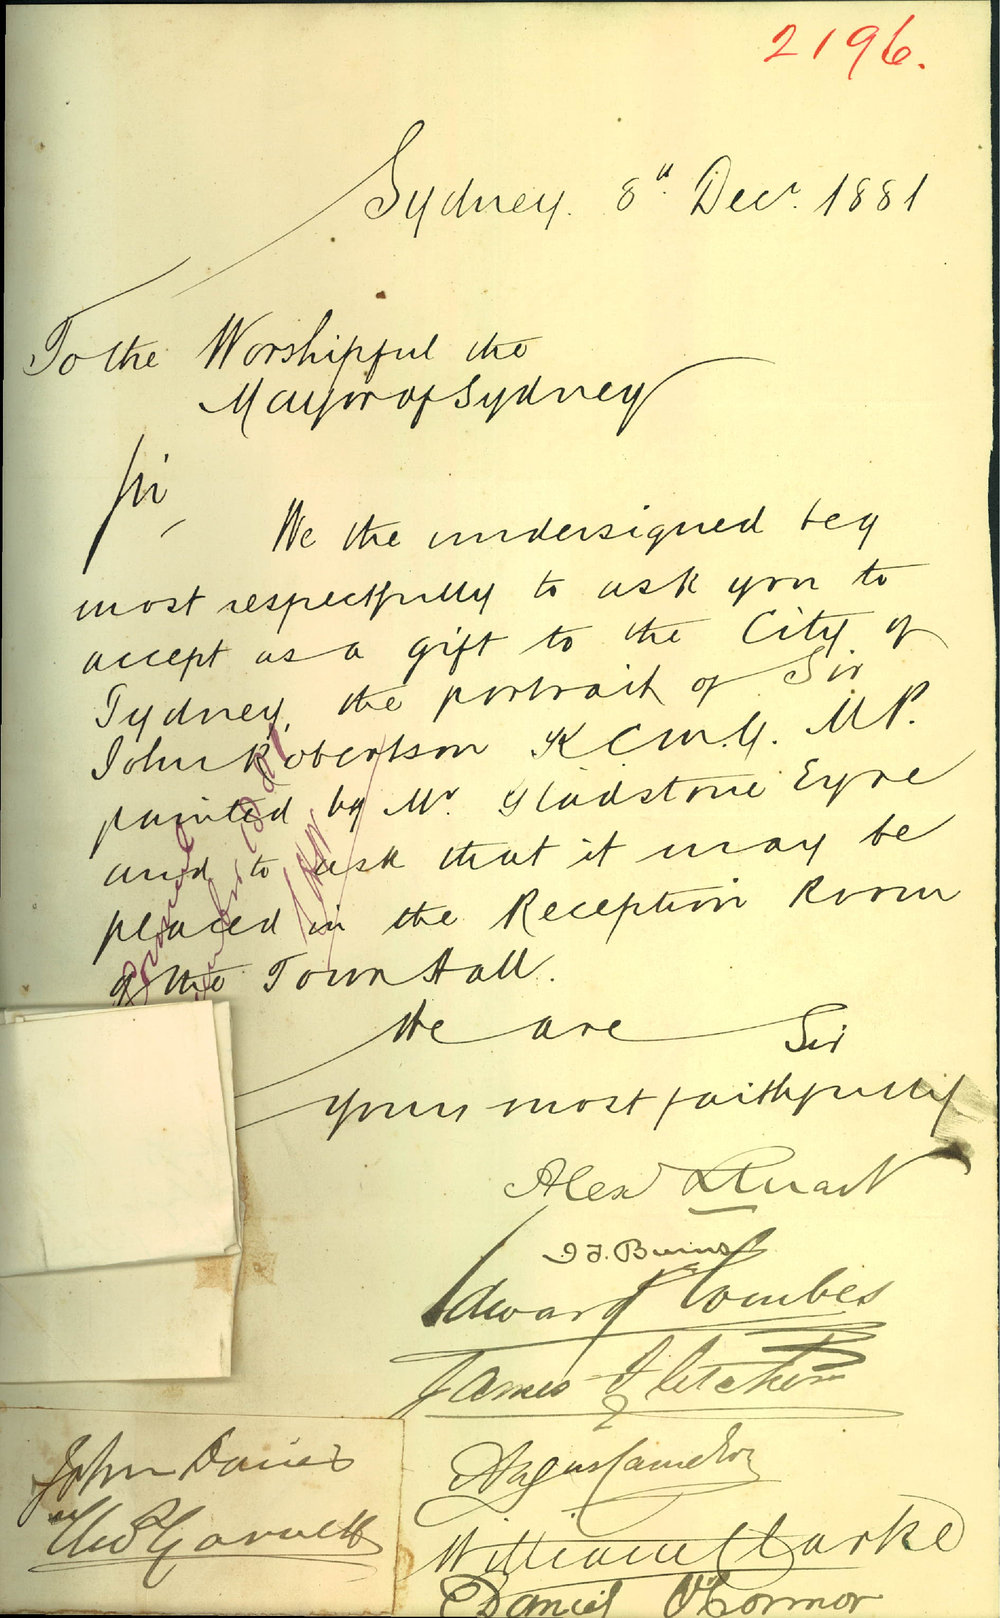 2196.
Sydney. 8th Decr. 1881
To the Worshipful the
Mayor of Sydney
Sir,
We the undersigned beg
most respectfully to ask you to
accept as a gift to the City of
Sydney, the portrait of Sir
John Robertson K C M.G. M P.
painted by Mr Gladstone Eyre
and to ask that it may be
placed in the Reception Room
of the Town Hall.
We are Sir
Yours most faithfully
Alexr Stuart
J F. Burns
Edward Combes
James Fletcher
Angus Cameron
William Clarke
Daniel O'Connor
John Davies
Thos Garrett